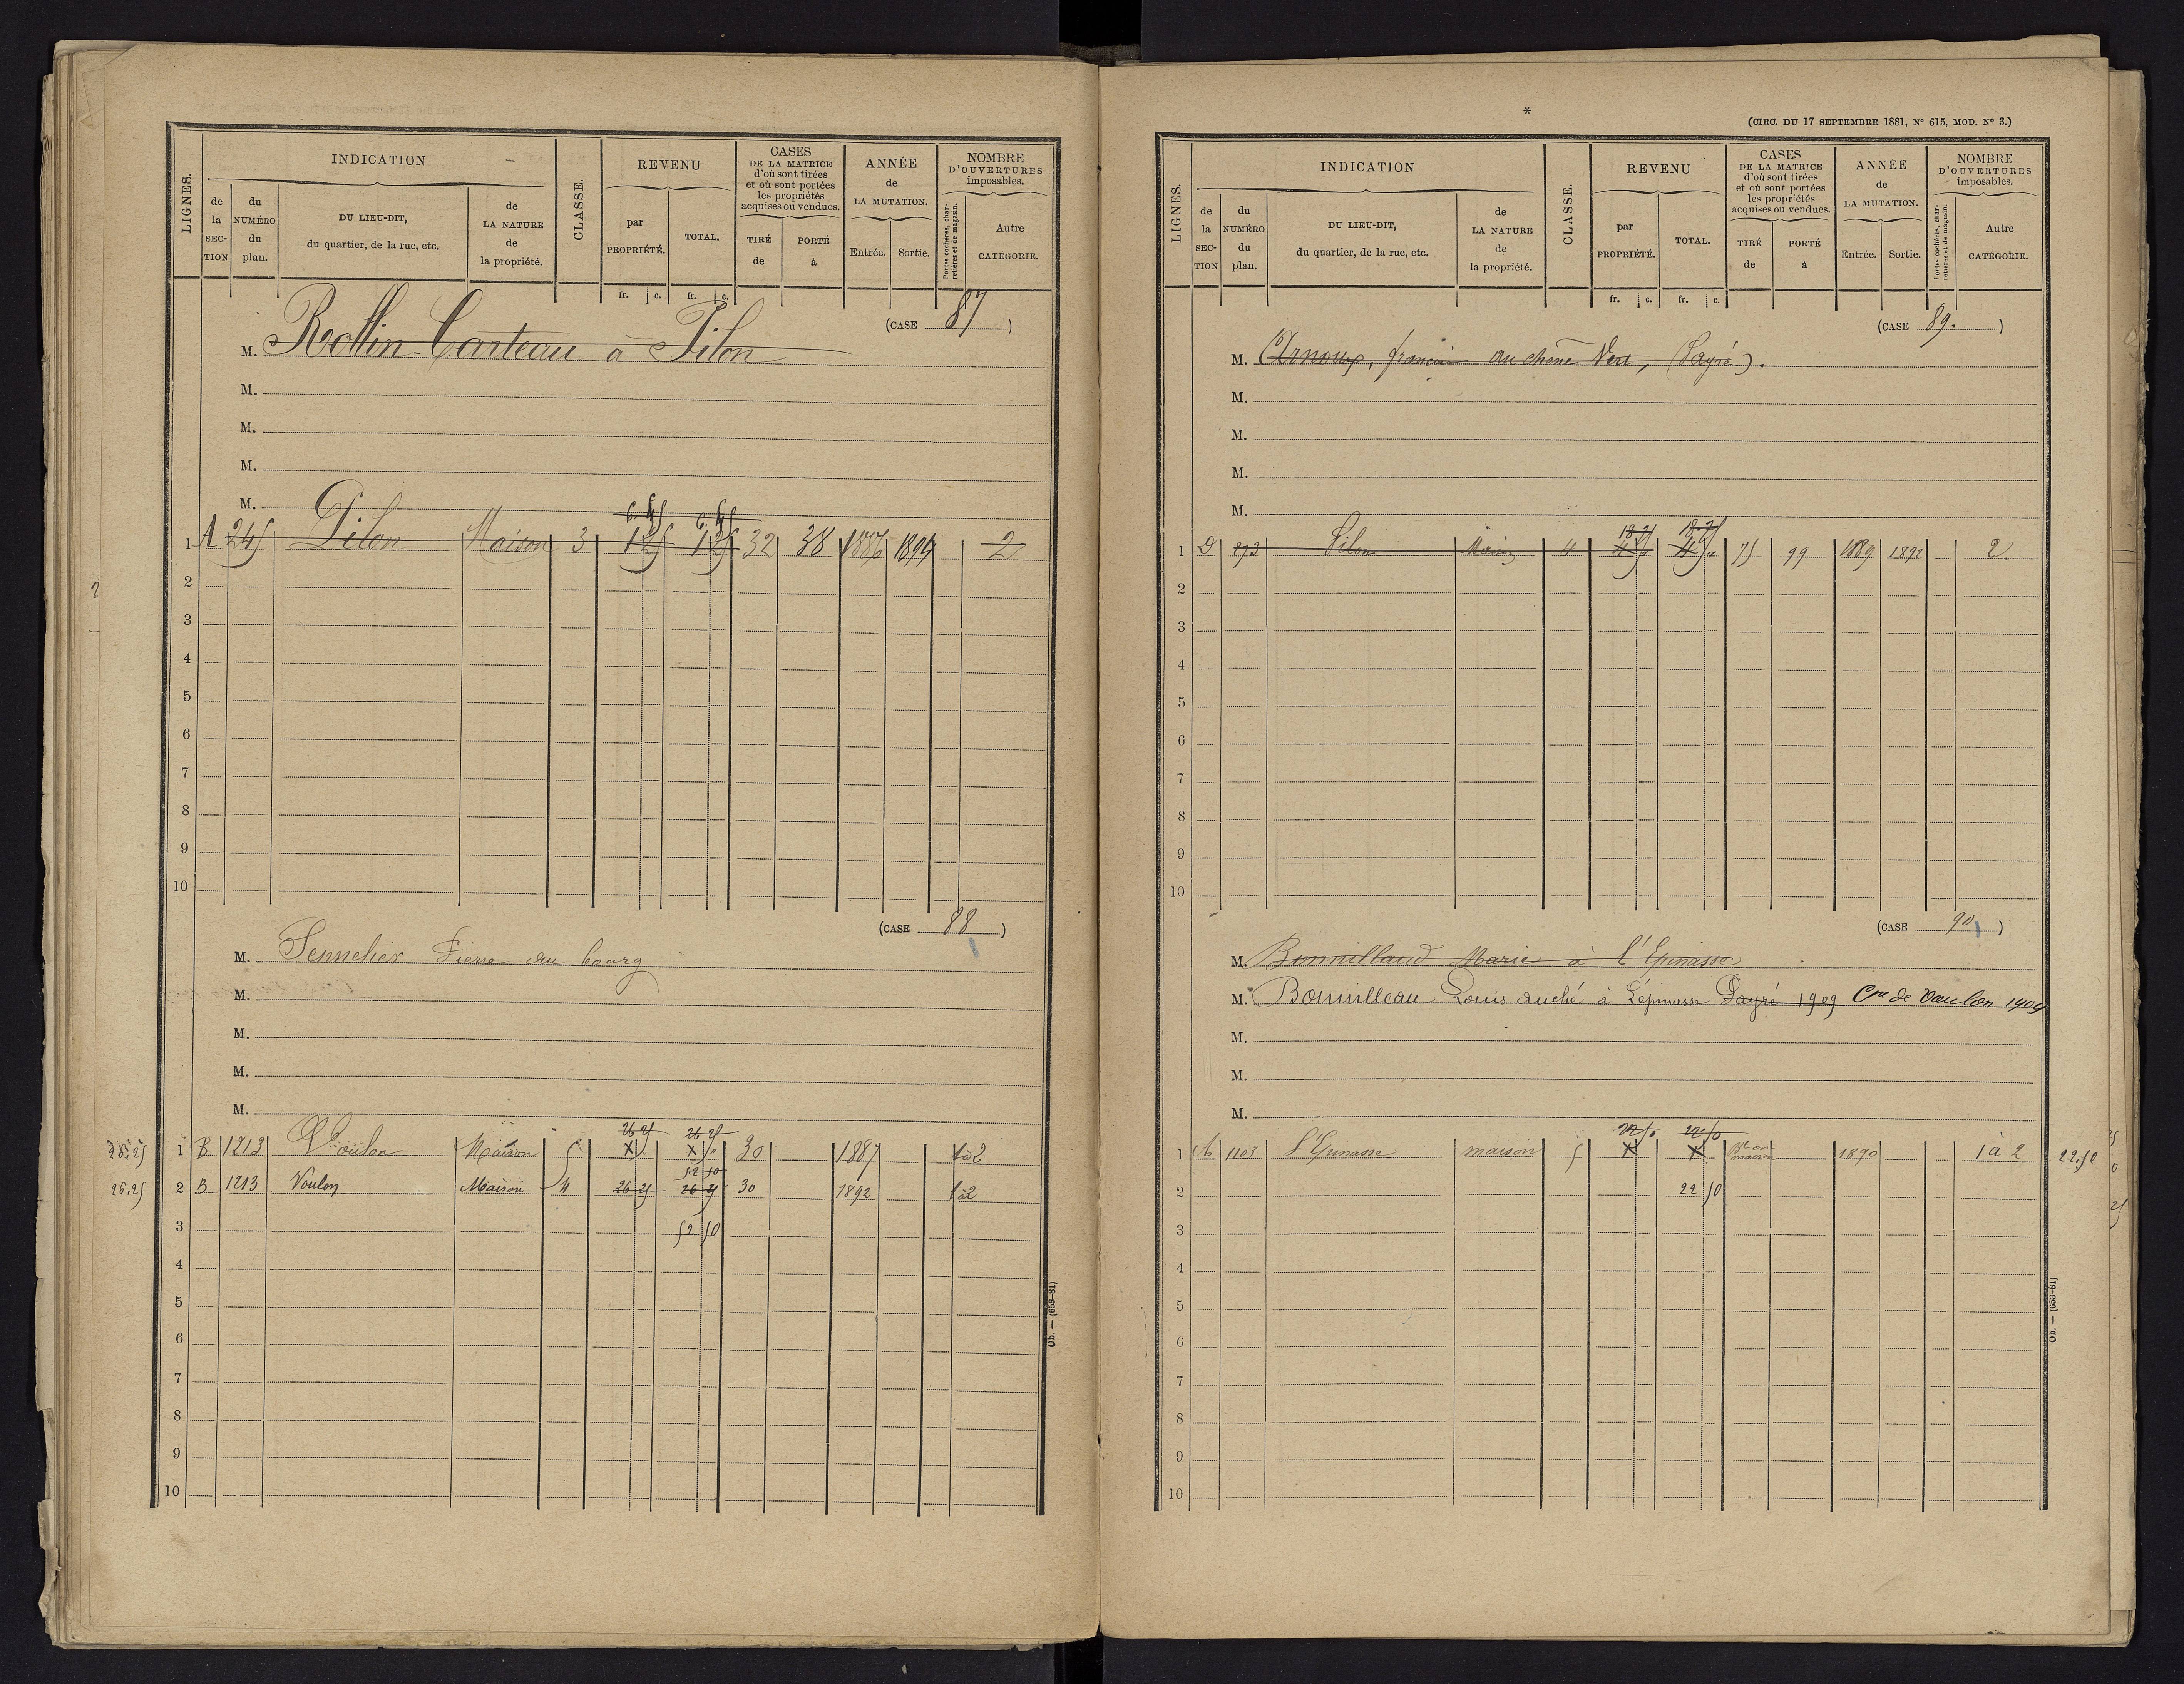 LIGNES.
INDICATION
de la SECTION
du NUMÉRO du plan.
DU LIEU-DIT, du quartier, de la rue, etc.
de LA NATURE de la propriété.
CLASSE.
REVENU
par PROPRIÉTÉ.
TOTAL.
fr. c. fr. c.
CASES DE LA MATRICE d'où sont tirées et où sont portées les propriétés acquises ou vendues.
TIRÉ de
PORTÉ à
ANNÉE de LA MUTATION.
Entrée. Sortie.
NOMBRE D'OUVERTURES imposables.
Portes cochères, charretières et de magasin.
Autre CATÉGORIE.
(CASE 87)
M. Rollin-Carteau à Pilon
M.
M.
M.
M.
6.45 6.45
1 A 245 Pilon Maison 3 125 125 32 38 1886 1894 2
2
3
4
5
6
7
8
9
10
(CASE 88)
M. Sennelier Pierre au bourg
M.
M.
M.
M.
26 25 26 25
28.25 1 B 1213 Voulon Maison 5 X X 30 1887 1à2
52 50
26.25 2 B 1213 Voulon Maison 4 26 25 26 25 30 1892 1à2
3 52 50
4
5
6
7
8
9
10
Ob. — (653-81)
*
(CIRC. DU 17 SEPTEMBRE 1881, Nº 615, MOD. Nº 3.)
LIGNES.
INDICATION
de la SECTION
du NUMÉRO du plan.
DU LIEU-DIT, du quartier, de la rue, etc.
de LA NATURE de la propriété.
CLASSE.
REVENU
par PROPRIÉTÉ.
TOTAL.
fr. c. fr. c.
CASES DE LA MATRICE d'où sont tirées et où sont portées les propriétés acquises ou vendues.
TIRÉ de
PORTÉ à
ANNEE de LA MUTATION.
Entrée. Sortie.
NOMBRE D'OUVERTURES imposables.
Portes cochères, charretières et de magasin.
Autre CATÉGORIE.
(CASE 89.)
M. Arnoux, françois au chêne Vert, (Payré).
M.
M.
M.
M.
18.75 18.75
1 D 273 Pilon Maison 4 75 99 1889 1892 2
2
3
4
5
6
7
8
9
10
(CASE 90)
M. Bonnilland Marie à l'Epinasse
M. Bonnilleau Louis auché à Lépinasse Payré 1909 Cne de Vaulon 1909
M.
M.
M.
22 50 22 50
1 A 1103 l'Epinasse maison 5 X X 1890 1 à 2 22.50
2 22 50
3
4
5
6
7
8
9
10
Ob. — (653-81)